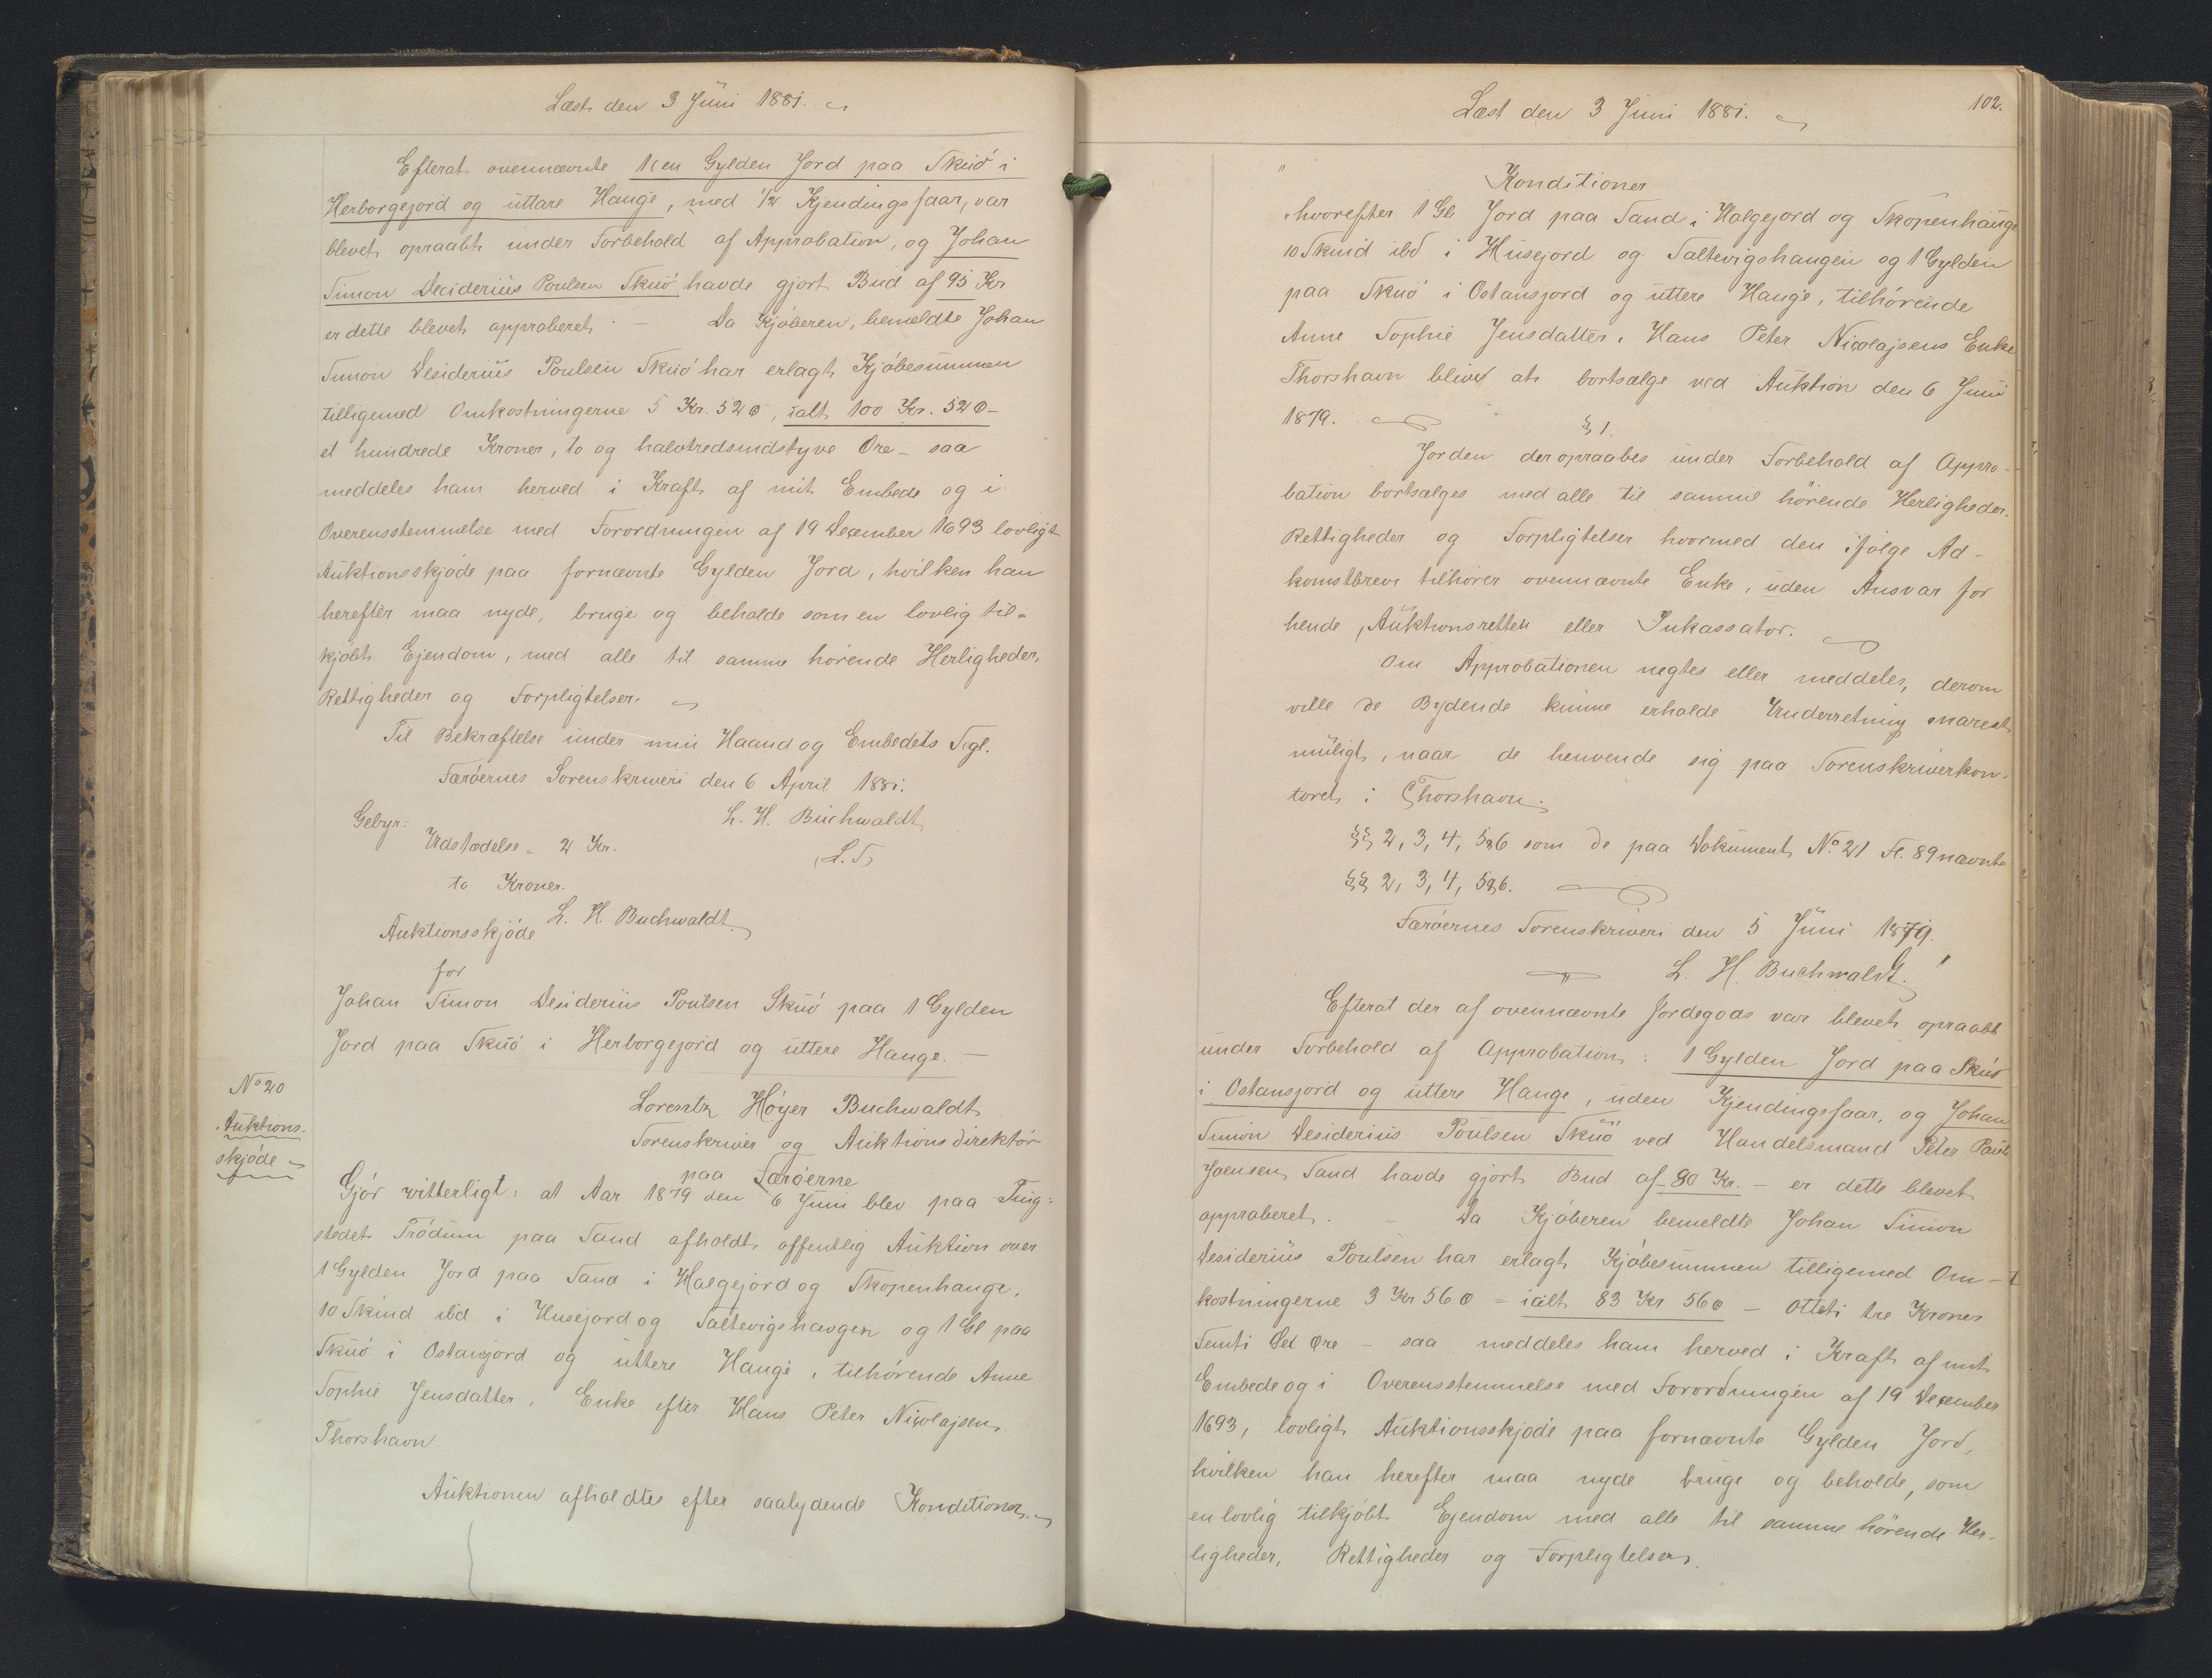 Læst den 3 Juni 1881.
Efterat ovennævnte 1(en Gylden Jord paa Skuö i
Herborgejord og uttare Hauge, med 1/2 Kjendingsfaar, var
blevet opraabt under Forbehold af Approbation, og Johan
Simon Deciderius Poulsen Skuö havde gjort Bud af 95 Kr
er dette blevet approberet. — Da Kjøberen, bemeldte Johan
Simon Desiderius Poulsen Skuö har erlagt Kjøbesummen
tilligemed Omkostningerne 5 Kr. 52 Ø, ialt 100 Kr. 52 Ø —
et hundrede Kroner, to og halvtredsindstyve Øre — saa
meddeles ham herved i Kraft af mit Embede og i
Overensstemmelse med Forordningen af 19 December 1693 lovligt
Auktionsskjøde paa fornævnte Gylden Jord, hvilken han
herefter maa nyde, bruge og beholde som en lovlig til-
kjøbt Ejendom, med alle til samme hørende Herligheder,
Rettigheder og Forpligtelser.
Til Bekræftelse under min Haand og Embedets Segl.
Færøernes Sorenskriveri den 6 April 1881.
L. H. Buchwaldt
Gebyr:
Udstædelse = 2 Kr.
(L.S)
to Kroner.
L. H. Buchwaldt.
Auktionsskjøde
for
Johan Simon Desiderius Poulsen Skuö paa 1 Gylden
Jord paa Skuö i Herborgejord og uttere Hauge. —
No 20
Auktions-
skjøde
Lorentz Høyer Buchwaldt
Sorenskriver og Auktionsdirektør
paa Færøerne
Gjør vitterligt: at Aar 1879 den 6 Juni blev paa Ting-
stedet Trödum paa Sand afholdt offentlig Auktion over
1 Gylden Jord paa Sand i Halgejord og Skopenhauge,
10 Skind ibd i Husejord og Saltevigshaugen og 1 Gl paa
Skuö i Ostansjord og uttere Hauge, tilhørende Anne
Sophie Jensdatter, Enke efter Hans Peter Nicolajsen,
Thorshavn
Auktionen afholdtes efter saalydende Konditioner.
Læst den 3 Juni 1881.
102.
"
Konditioner
hvorefter 1 Gl. Jord paa Sand i Halgejord og Skopenhauge
10 Skind ibd i Husejord og Saltevigshaugen og 1 Gylden
paa Skuö i Ostansjord og uttere Hauge, tilhørende
Anne Sophie Jensdatter, Hans Peter Nicolajsens Enke
Thorshavn bliver at bortsælge ved Auktion den 6 Juni
1879.
§ 1.
Jorden der opraabes under Forbehold af Appro-
bation bortsælges med alle til samme hörende Herligheder,
Rettigheder og Forpligtelser hvormed den ifølge Ad-
komstbreve tilhører ovennævnte Enke, uden Ansvar for
hende, Auktionsretten eller Inkassator.
Om Approbationen negtes eller meddeles, derom
ville de Bydende kunne erholde Underretning snarest
muligt, naar de henvende sig paa Sorenskriverkon-
toret i Thorshavn.
§§ 2, 3, 4, 5 & 6 som de paa Dokument No 21 Fl. 89 nævnte
§§ 2, 3, 4, 5 & 6.
Færøernes Sorenskriveri den 5 Juni 1879.
L. H. Buchwaldt. "
Efterat der af ovennævnte Jordegods var blevet opraabt
under Forbehold af Approbation: 1 Gylden Jord paa Skuö
i Ostansjord og uttere Hauge, uden Kjendingsfaar, og Johan
Simon Desiderius Poulsen Skuö ved Handelsmand Peter Poul
Joensen, Sand havde gjort Bud af 80 Kr. — er dette blevet
approberet. — Da Kjøberen bemeldte Johan Simon
Desiderius Poulsen har erlagt Kjøbesummen tilligemed Om-
kostningerne 3 Kr 56 Ø = ialt 83 Kr 56 Ø — Otteti tre Kroner
Femti Sex Øre — saa meddeles ham herved i Kraft af mit
Embede og i Overensstemmelse med Forordningen af 19 December
1693, lovligt Auktionsskjøde paa fornævnte Gylden Jord,
hvilken han herefter maa nyde bruge og beholde, som
en lovlig tilkjøbt Ejendom med alle til samme hørende Her-
ligheder, Rettigheder og Forpligtelser.